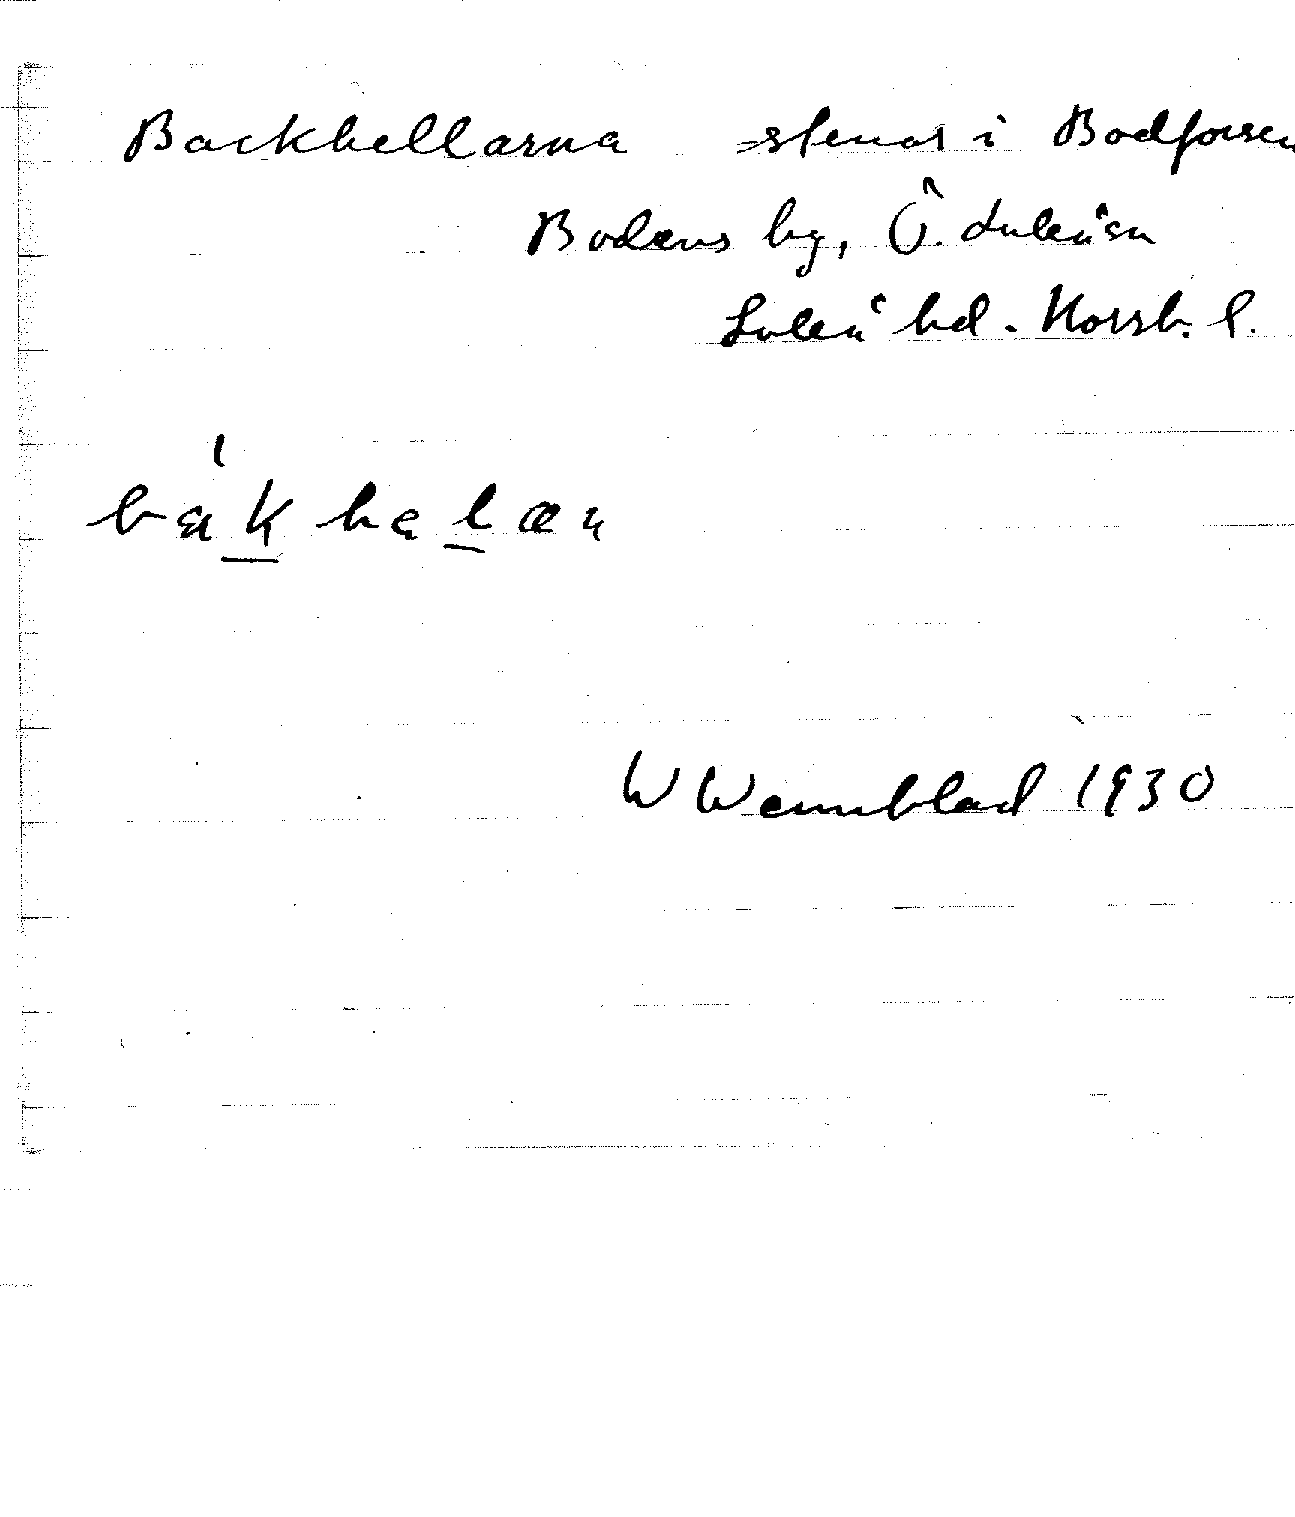 Backhellarna = stenar i Bodforsen
Bodens by, Ö. Luleå sn
Luleå hd. Norrb. l.
bakhelæn
W Wennblad 1930